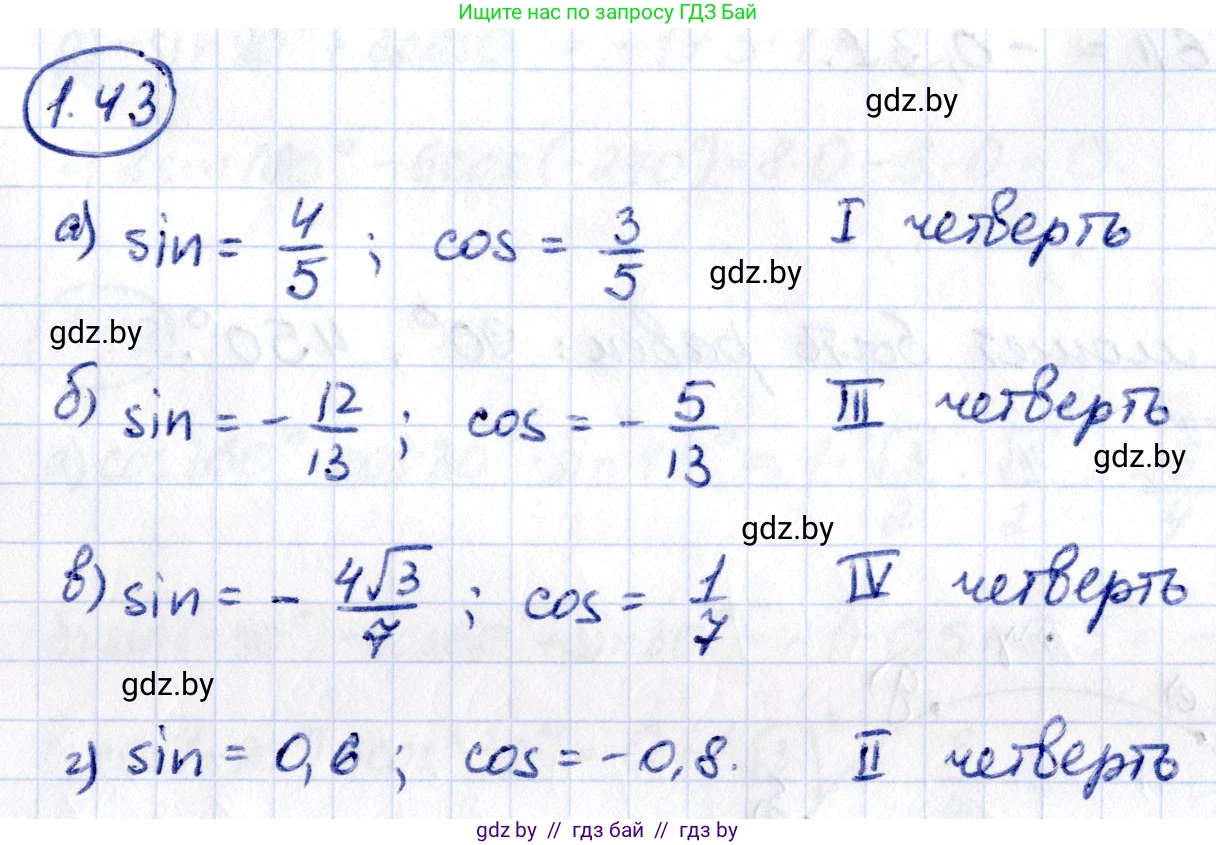 Ищите нас по запросу ГДЗ Бай
1.43
gdz.by
а) sin = 4/5 ; cos = 3/5 I четверть
gdz.by
gdz.by
б) sin = - 12/13 ; cos = - 5/13 III четверть
gdz.by
gdz.by
в) sin = - 4√3/7 ; cos = 1/7 IV четверть
gdz.by
г) sin = 0,6 ; cos = -0,8. II четверть
gdz.by // гдз бай // гдз by